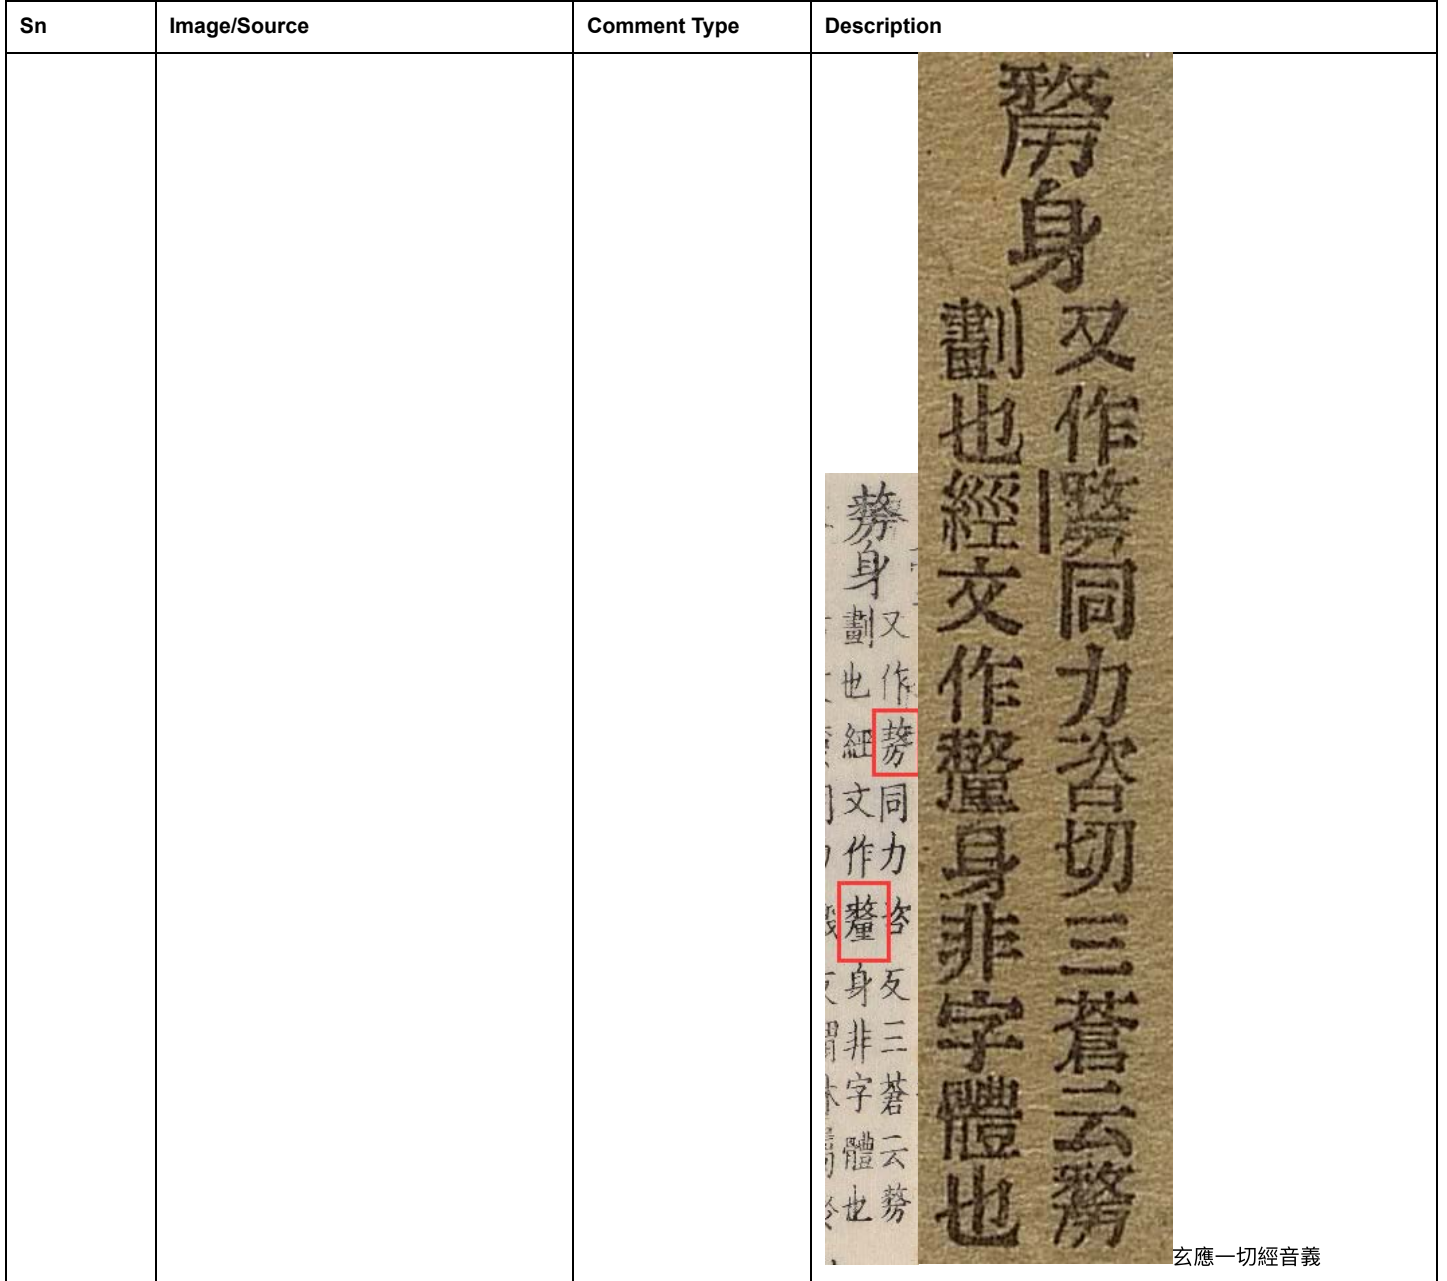 Sn
Image/Source
Comment Type
Description
身
又作同力咨反三蒼云
劃也經文作釐身非字體也
身
又作同力咨切三蒼云
劃也經文作釐身非字體也
玄應一切經音義